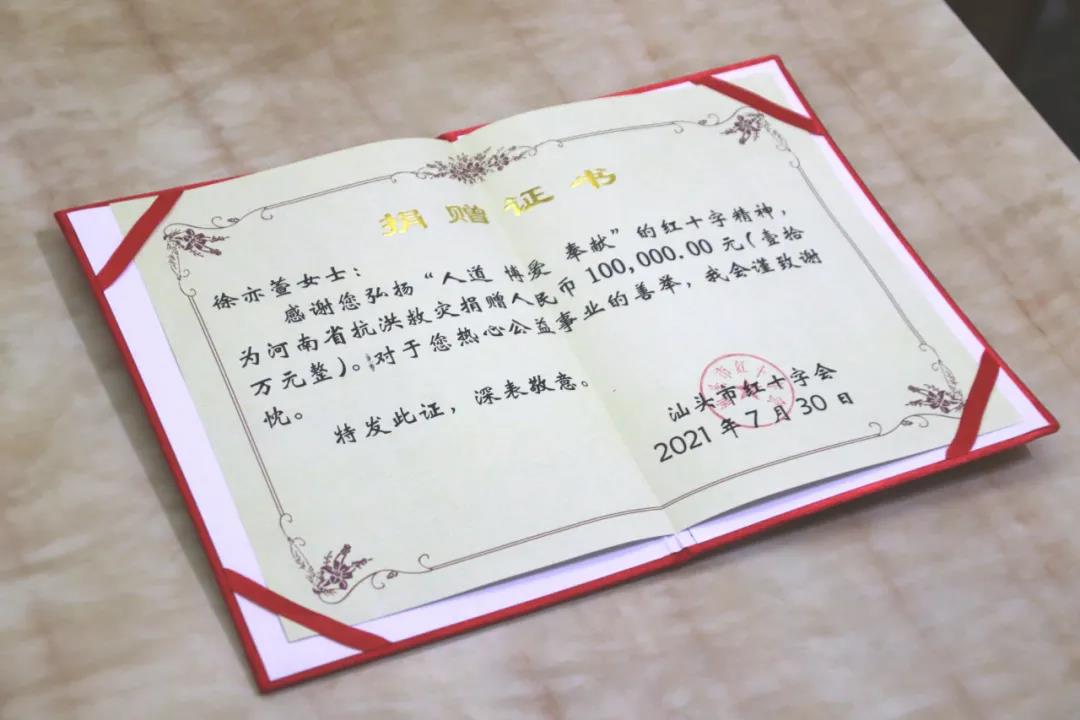 捐赠证书
徐亦萱女士：
感谢您弘扬“人道 博爱 奉献”的红十字精神，
为河南省抗洪救灾捐赠人民币 100,000.00 元(壹拾
万元整)。对于您热心公益事业的善举，我会谨致谢
忱。
特发此证，深表敬意。
汕头市红十字会
2021 年 7 月 30 日